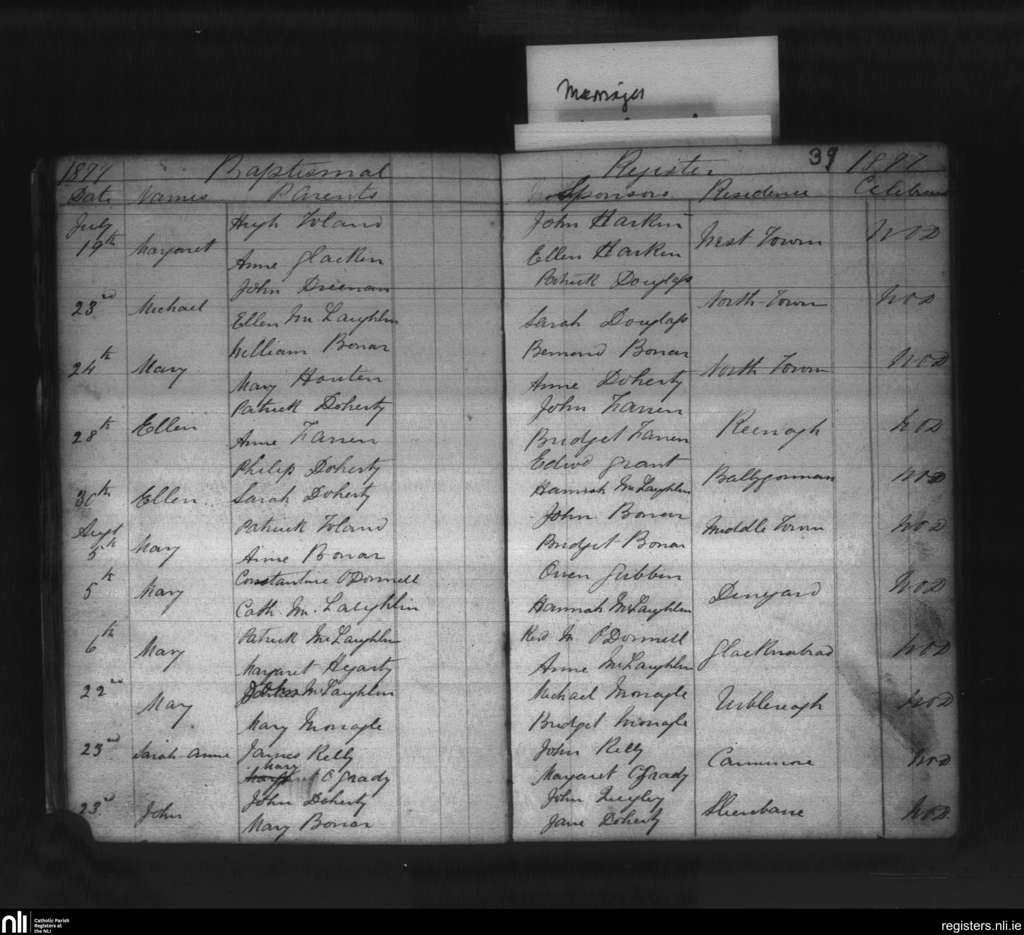 Marriages
39
1897 Baptismal Register 1897
Date Names Parents Sponsors Residence
July Hugh Toland John Harkin
19th Margaret West Town
Anne Glacken Ellen Harkin
John Patrick Douglass
23rd Michael North Town
Ellen McLaughlin Sarah Douglass
William Bonar Bernard Bonar
24th Mary North Town
Mary Houten Anne Doherty
Patrick Doherty John Farren
28th Ellen
Anne Farren Bridget Farren
Philip Doherty Edwd Grant
30th Ellen Sarah Doherty Hannah McLaughlin Ballygorman
Augt Patrick Toland John Bonar Middle Town
5th Mary Anne Bonar Bridget Bonar
Constantine O'Donnell Owen Gubbin
5th Mary
Cath. McLaughlin Hannah McLaughlin
6th Patrick McLaughlin Revd M O'Donnell
Mary Margaret Hegarty Anne McLaughlin
22nd McLaughlin Michael Monagle
Mary Mary Monagle Bridget Monagle
23rd Sarah Anne James Kelly John Kelly
Mary
O'Grady Margaret O'Grady
John Doherty John
23rd John Mary Bonar Jane Doherty
nli Catholic Parish
Registers at
the NLI
registers.nli.ie